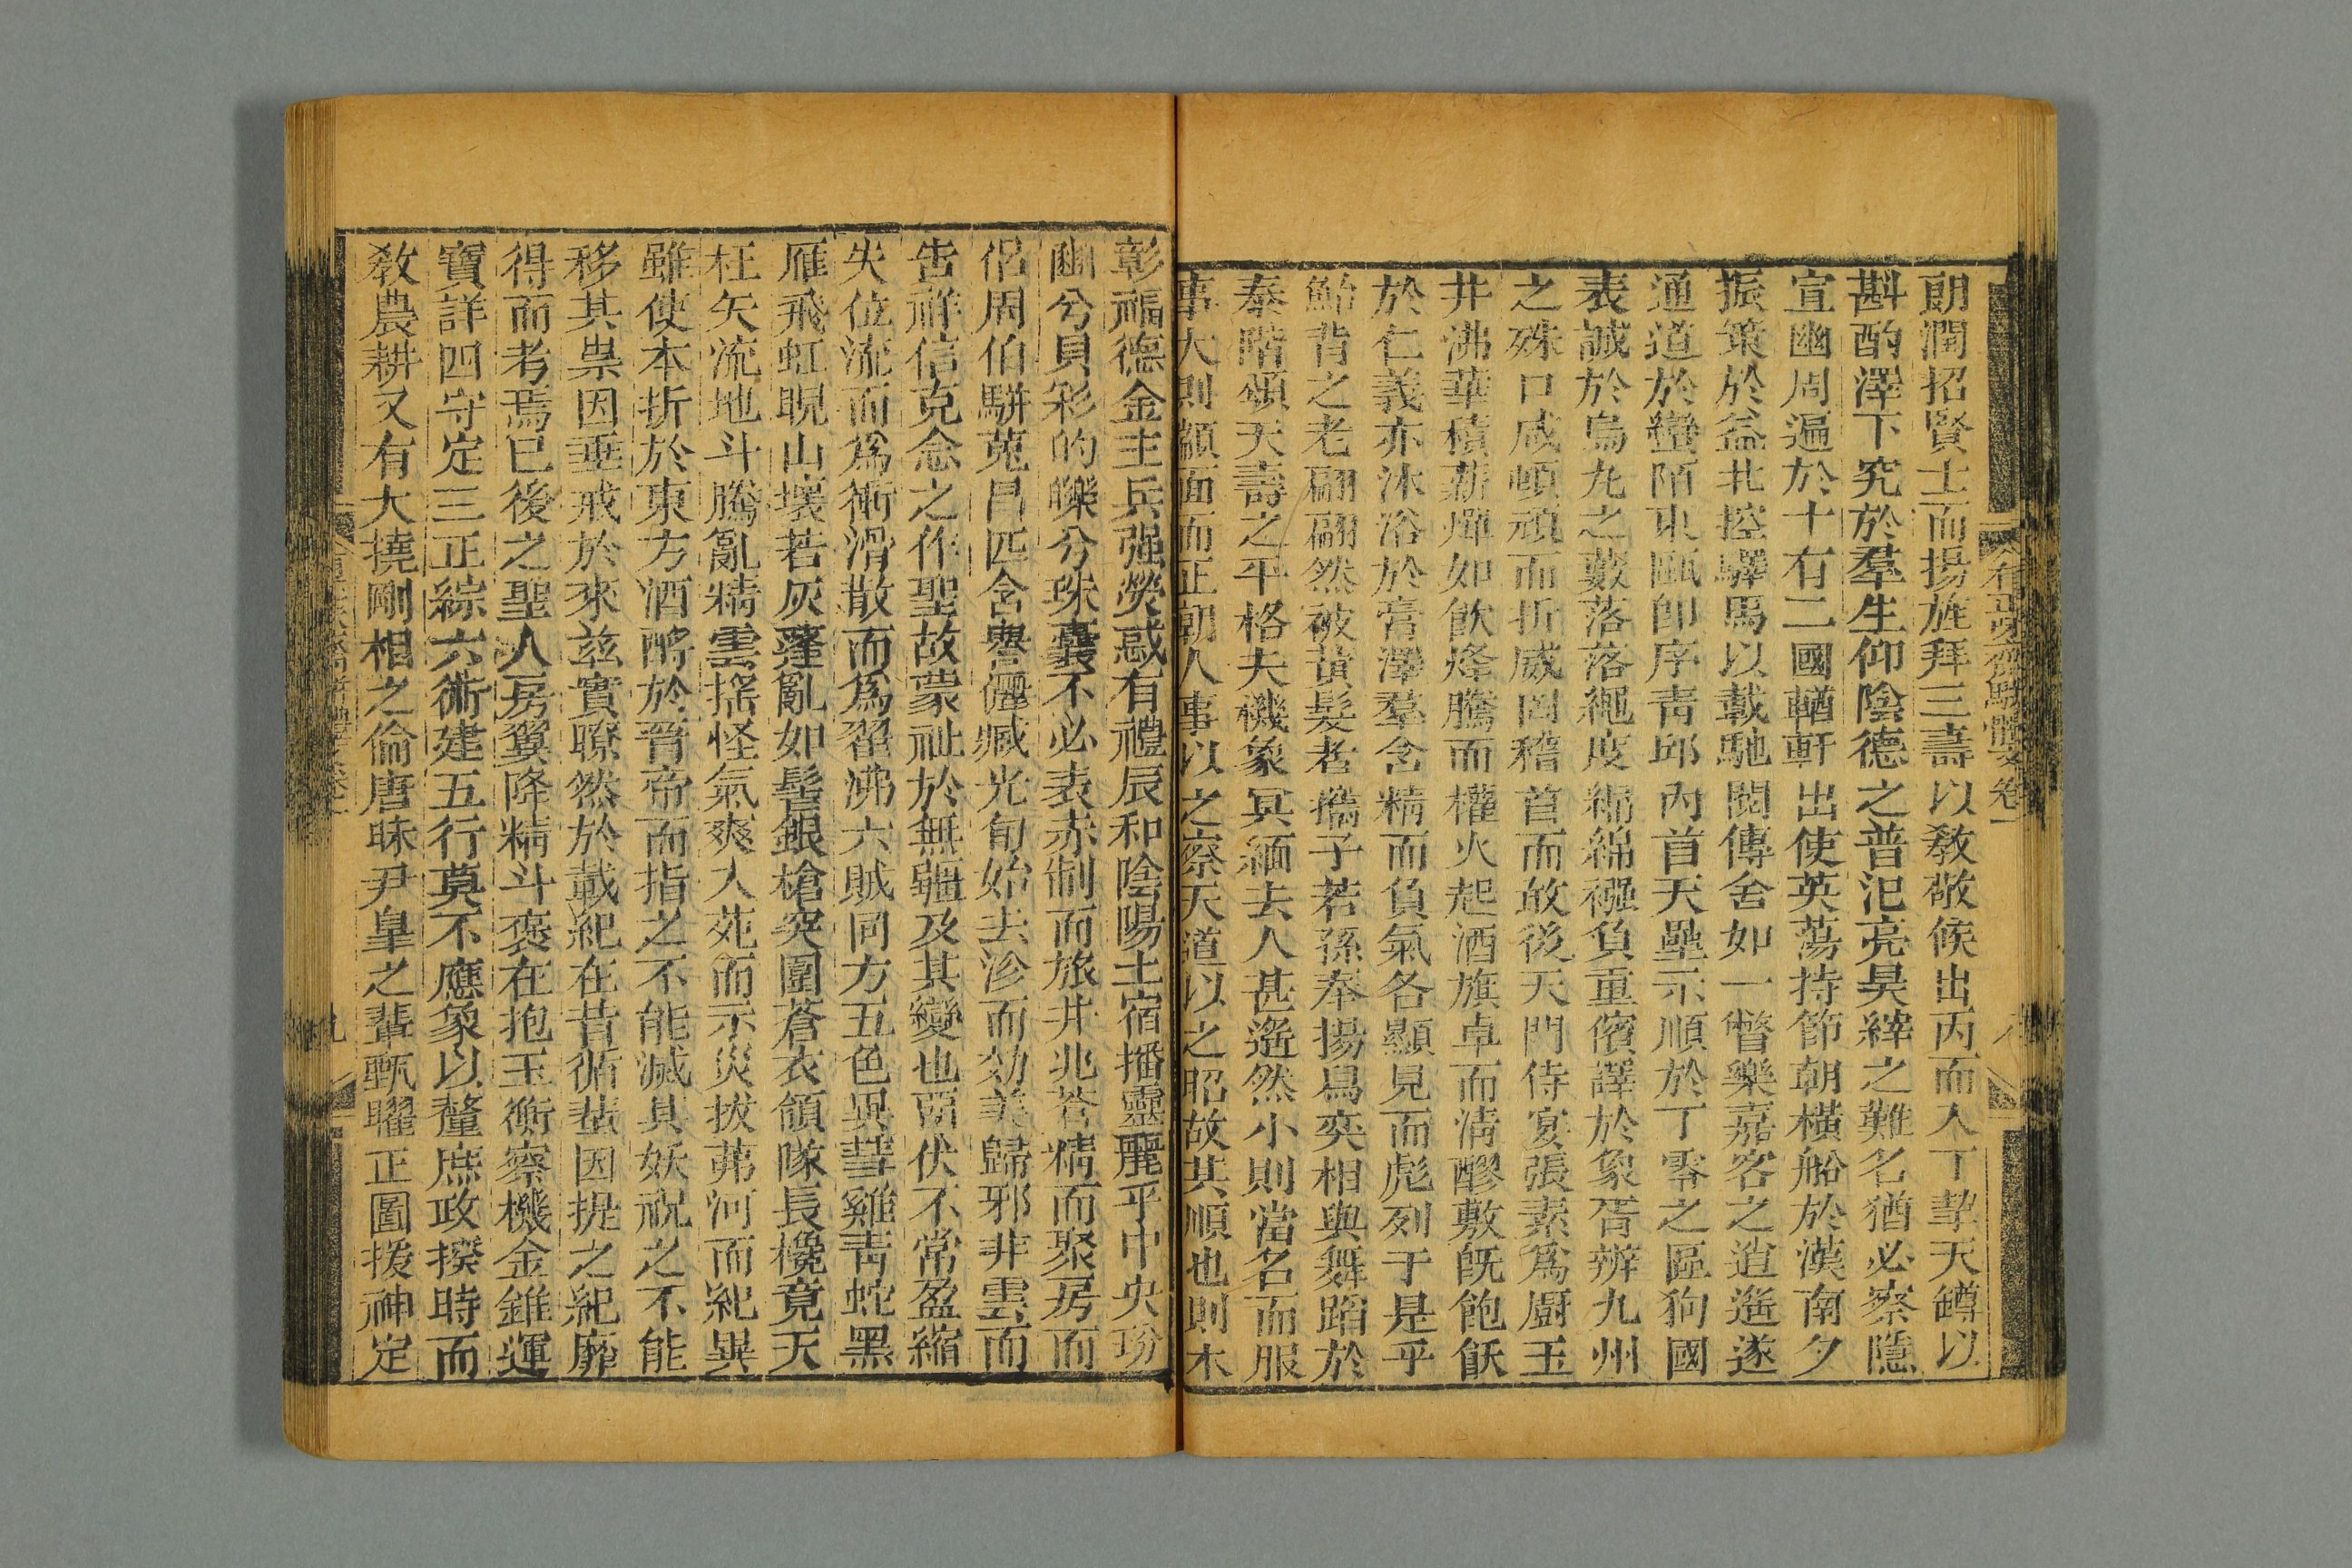 朗潤招賢士而揚旌拜三壽以敎敬候出丙而入丁挈天罇以
斟酌澤下究於羣生仰陰德之普汜亮昊縡之難名猶必察隱
宣幽周遍於十有二國輶軒出使英蕩持節朝橫船於漢南夕
振策於益北控驛馬以載馳閱傳舍如一瞥樂嘉客之逍遙遂
通道於蠻陌東甌卽序靑邱內首天壘示順於丁零之區狗國
表誠於烏丸之藪落落繩度綿綿襁負重儐譯於象胥辨九州
之殊口咸頓顙而折威罔稽首而敢後天門侍宴張素爲廚玉
井沸華積薪燀如飮烽騰而權火起酒旗卓而淸醪敷旣飽飫
於仁義亦沐浴於膏澤羣含精而負氣各顯見而彪列于是乎
鮐背之老翩翩然被黃髮耆擕子若孫奉揚舄奕相與舞蹈於
泰階頌天壽之平格夫機象冥緬去人甚遙然小則當名而服
事大則顓面而正朝人事以之察天道以之昭故其順也則木
彰福德金主兵强熒惑有禮辰和陰陽土宿播靈麗乎中央玢
豳兮貝彩的皪兮珠囊不必表赤制而旅井兆蒼精而聚房而
侶周伯駢莵昌匹含譽儷臧光旬始去沴而効美歸邪非雲而
告祥信克念之作聖故蒙祉於無疆及其變也匿伏不常盈縮
失位流而爲術滑散而爲翟沸六賊同方五色異彗雞靑蛇黑
雁飛虹晛山壞若灰蓬亂如髻銀槍突圍蒼衣領隊長欃竟天
枉矢流地斗騰亂精雲搖怪氣爽入苑而示災拔茀河而紀異
雖使本折於東方酒酹於晉帝而指之不能滅其妖祝之不能
移其祟因垂戒於來兹實暸然於載紀在昔循蜚因提之紀靡
得而考焉已後之聖人房翼降精斗褒在抱玉衡察機金錐運
寶詳四守定三正綜六術建五行莫不應象以釐庶政揆時而
敎農耕又有大撓剛相之倫唐昧尹皐之輩甄曜正圖援神定